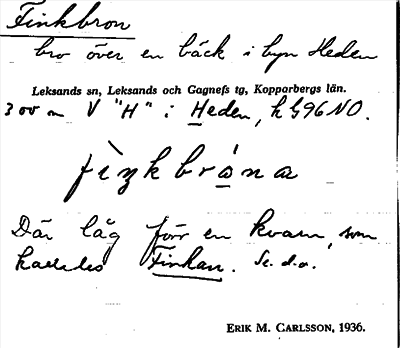 Finkbron
bro över en bäck i byn Heden
Leksands sn, Leksands och Gagnefs tg, Kopparbergs län.
300 m V "H" i Heden, k G96 NO.
Där låg förr en kvarn, som
kallades Finkan. Se. d. o.
ERIK M. CARLSSON, 1936.